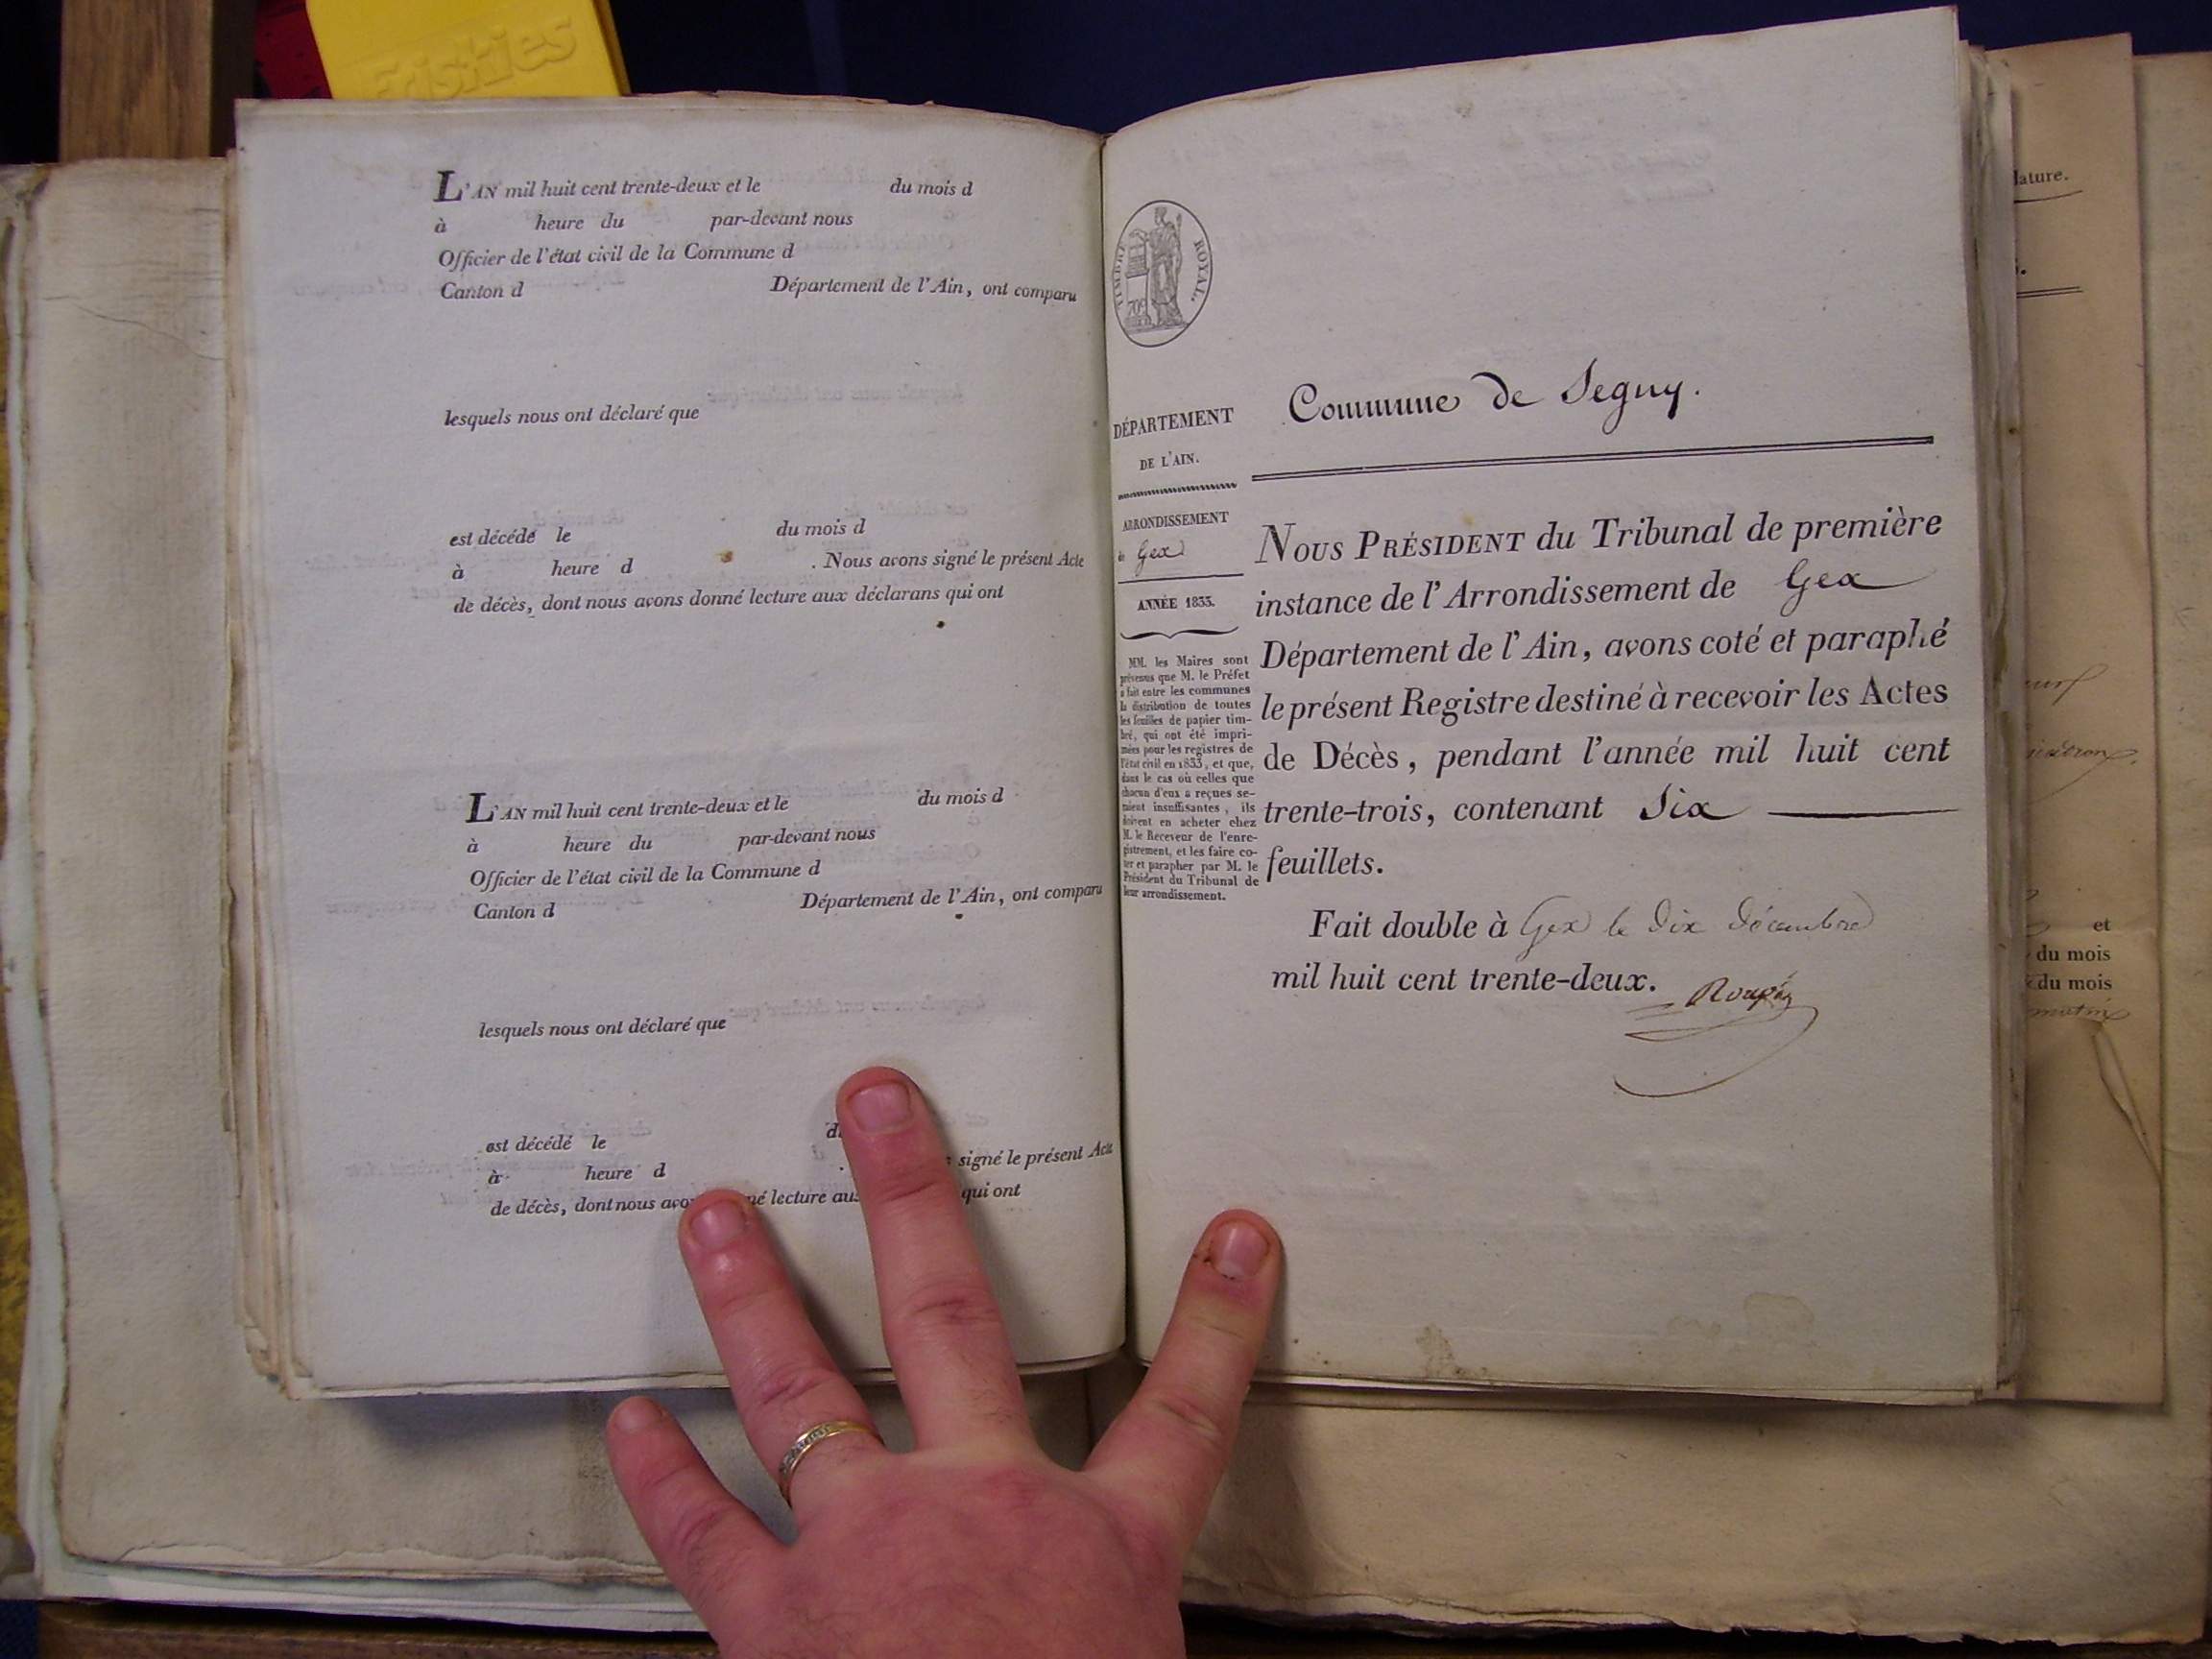 Friskies
L'AN mil huit cent trente-deux et le du mois d
à heure du par-devant nous
Officier de l'état civil de la Commune d
Canton d Département de l'Ain, ont comparu
lesquels nous ont déclaré que
est décédé le du mois d
à heure d . Nous avons signé le présent Acte
de décès, dont nous avons donné lecture aux déclarans qui ont
L'AN mil huit cent trente-deux et le du mois d
à heure du par-devant nous
Officier de l'état civil de la Commune d
Canton d Département de l'Ain, ont comparu
lesquels nous ont déclaré que
est décédé le
à heure d . signé le présent Acte
de décès, dont nous lecture qui ont
TIMBRE ROYAL.
DÉPARTEMENT
DE L'AIN.
ARRONDISSEMENT
Gex
ANNÉE 1833.
MM. les Maires sont
prévenus que M. le Préfet
a fait entre les communes
la distribution de toutes
les feuilles de papier tim-
bré, qui ont été impri-
mées pour les registres de
l'état civil en 1833, et que,
dans le cas où celles que
chacun d'eux a reçues se-
raient insuffisantes, ils
doivent en acheter chez
M. le Receveur de l'enre-
gistrement, et les faire co-
ter et parapher par M. le
Président du Tribunal de
leur arrondissement.
Commune de Segny.
NOUS PRÉSIDENT du Tribunal de première
instance de l'Arrondissement de Gex
Département de l'Ain, avons coté et paraphé
le présent Registre destiné à recevoir les Actes
de Décès, pendant l'année mil huit cent
trente-trois, contenant Six
feuillets.
Fait double à Gex le dix décembre
mil huit cent trente-deux.
et
du mois
du mois